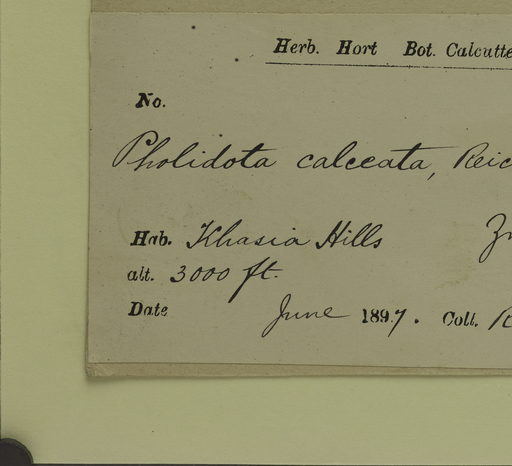 Herb. Hort Bot. Calcutte
No.
Pholidota calceata, Reic
Hab. Khasia Hills
alt. 3000 ft.
Date June 1897. Coll. R